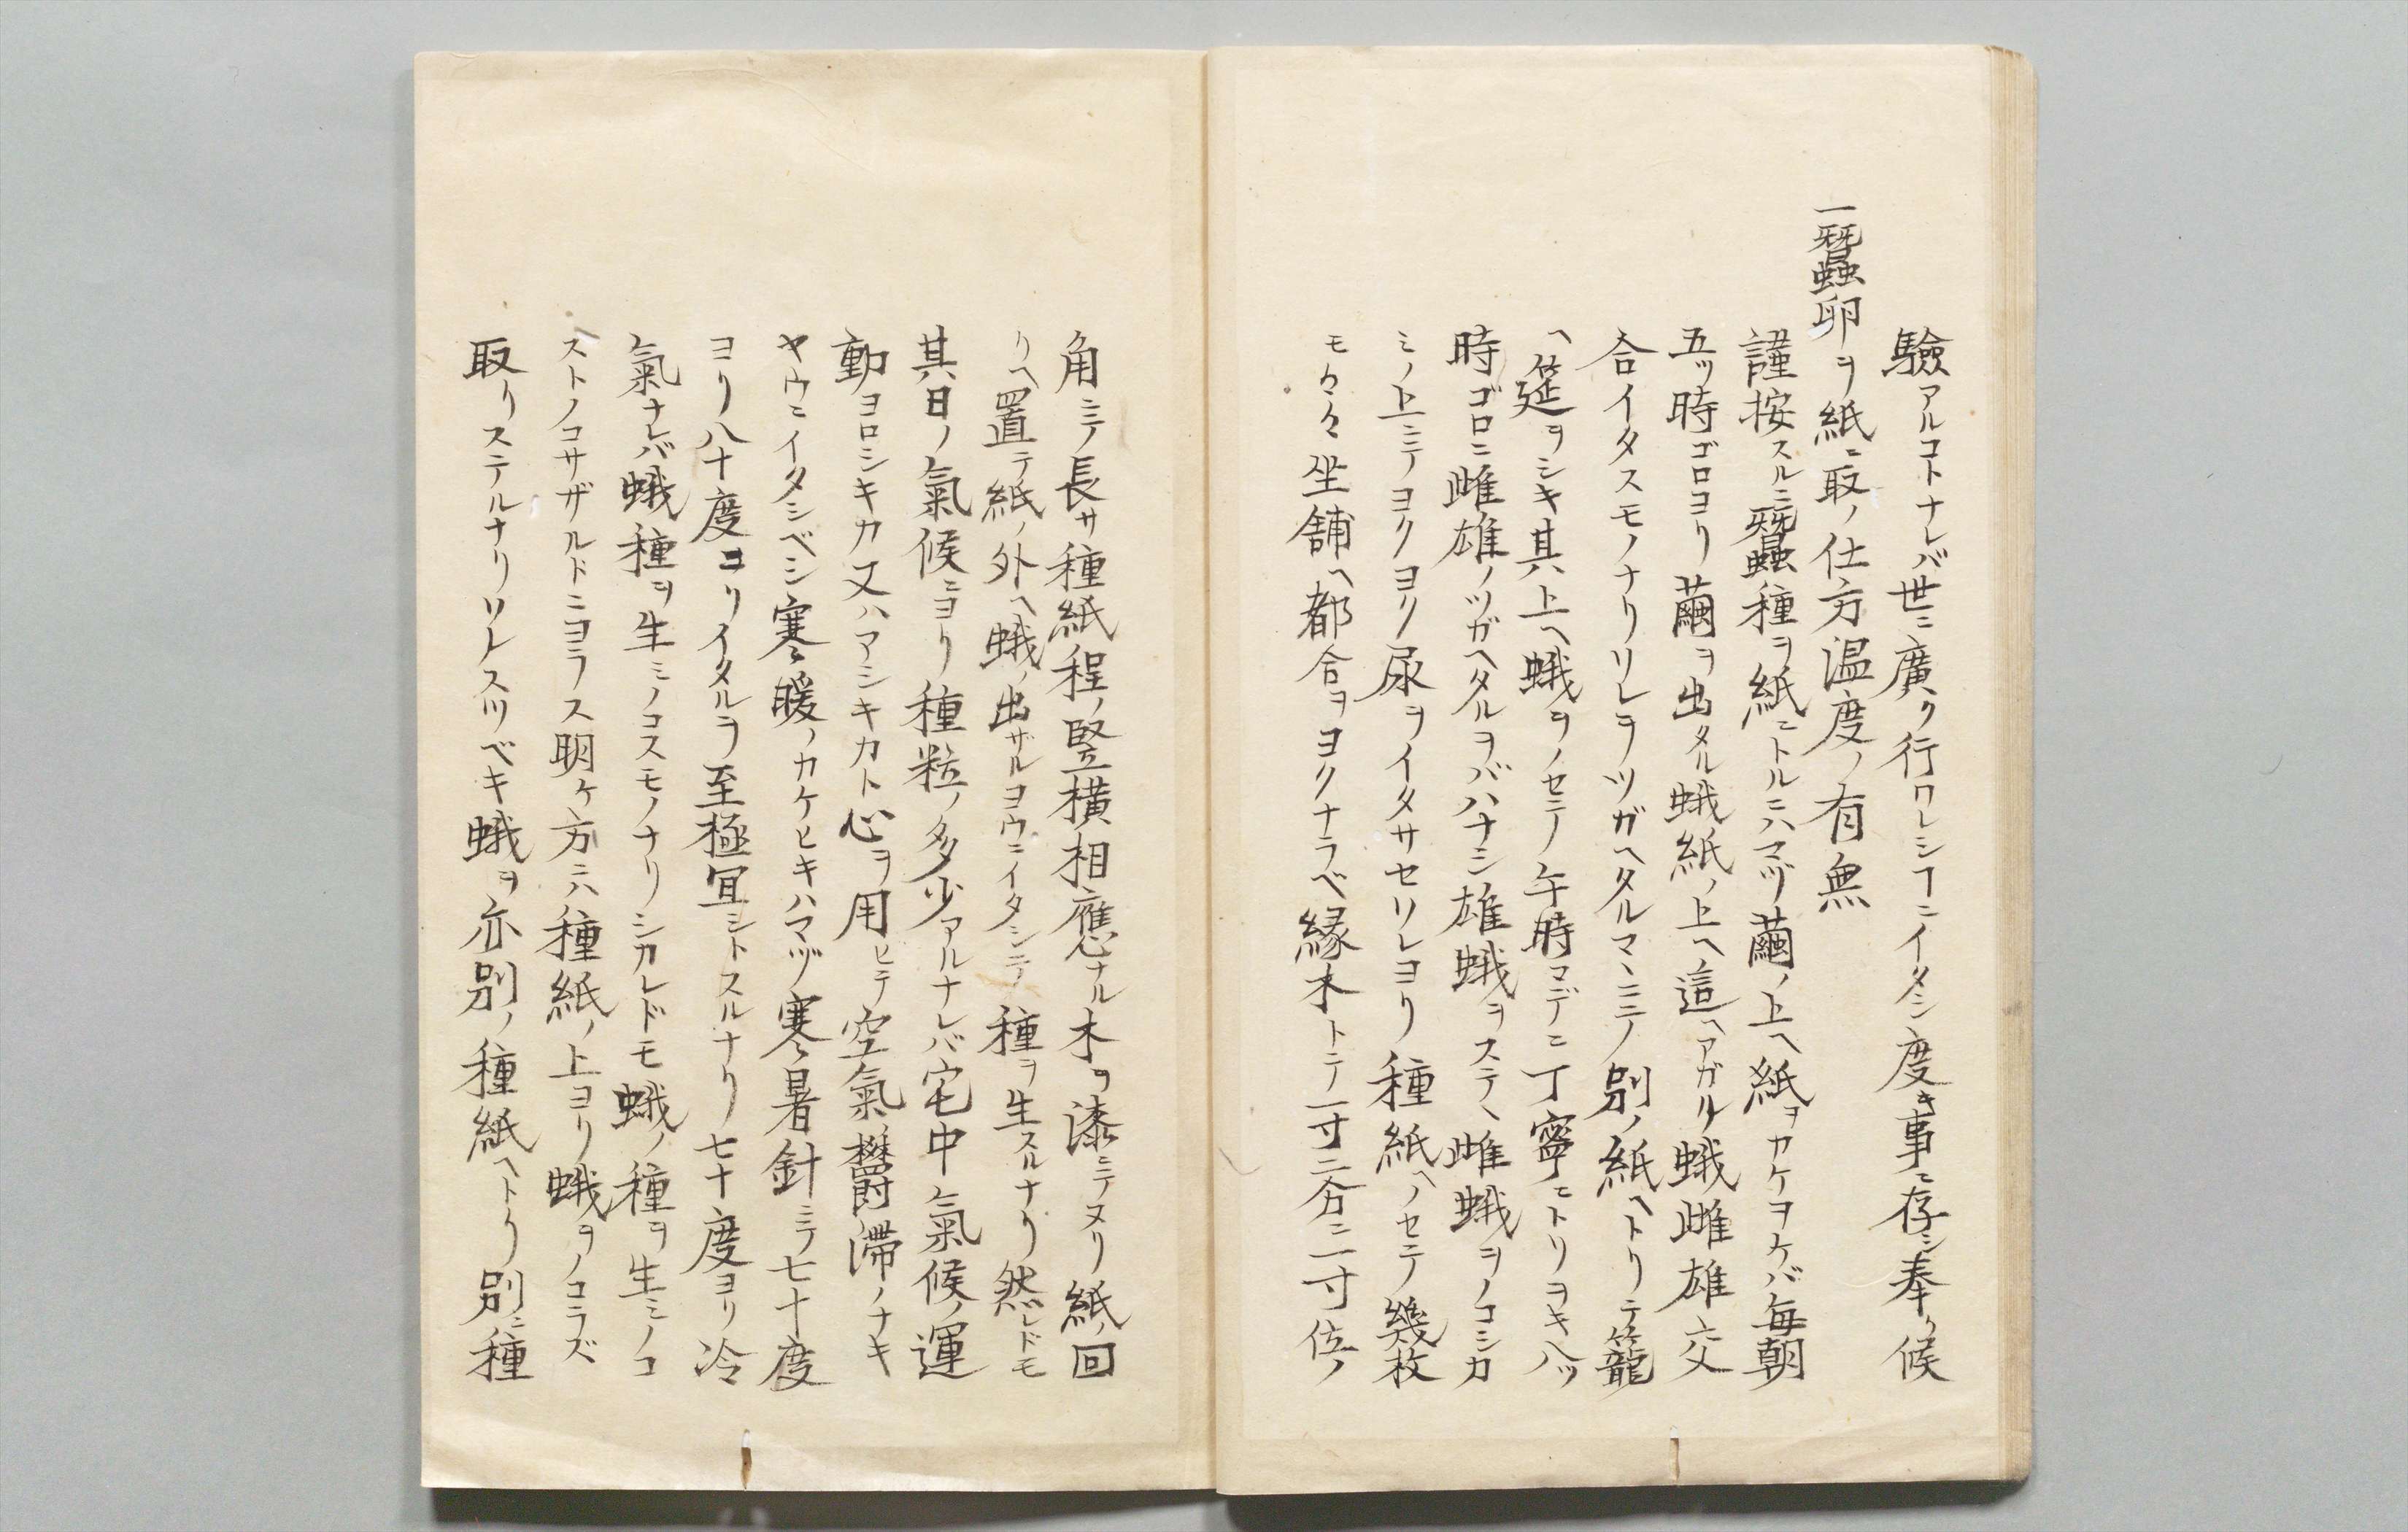 驗アルコトナレバ世ニ廣ク行ワレシヿニイタシ度キ事ニ存シ奉リ候
一蠶卵ヲ紙ニ取ノ仕方温度ノ有無
謹按スルニ蠶種ヲ紙ニトルニハマヅ繭ノ上ヘ紙ヲカケヲケバ毎朝
五ツ時ゴロヨリ繭ヲ出タル蛾紙ノ上ヘ這ヘアガル蛾雌雄交
合イタスモノナリソレヲツガヘタルマヽニテ別ノ紙ヘトリテ籠
ヘ筵ヲシキ其上ヘ蛾ヲノセテ午時マデニ丁寧ニトリヲキ八ツ
時ゴロニ雌雄ノツガヘタルヲバハナシ雄蛾ヲステヽ雌蛾ヲノコシカ
ミノ上ニテヨクヨク尿ヲイタサセソレヨリ種紙ヘノセテ幾枚
モ々々坐舗ヘ都合ヲヨクナラベ縁木トテ一寸二分ニ二寸位ノ
角ニテ長サ種紙程ノ竪横相應ナル木ヲ漆ニテヌリ紙ノ回
リヘ置テ紙ノ外ヘ蛾ノ出ザルヨウニイタシテ種ヲ生スルナリ然レドモ
其日ノ氣候ニヨリ種粒ノ多少アルナレバ宅中氣候ノ運
動ヨロシキカ又ハアシキカト心ヲ用ヒテ空氣ノ欝滯ノナキ
ヤウニイタシベシ寒暖ノカケヒキハマヅ寒暑針ニテ七十度
ヨリ八十度ヨリイタルヲ至極冝シトスルナリ七十度ヨリ冷
氣ナレバ蛾種ヲ生ミノコスモノナリシカレドモ蛾ノ種ヲ生ミノコ
ストノコサザルドニヨラス明ケ方ニハ種紙ノ上ヨリ蛾ヲノコラズ
取リステルナリソレスツベキ蛾ヲ亦別ノ種紙ヘトリ別ニ種